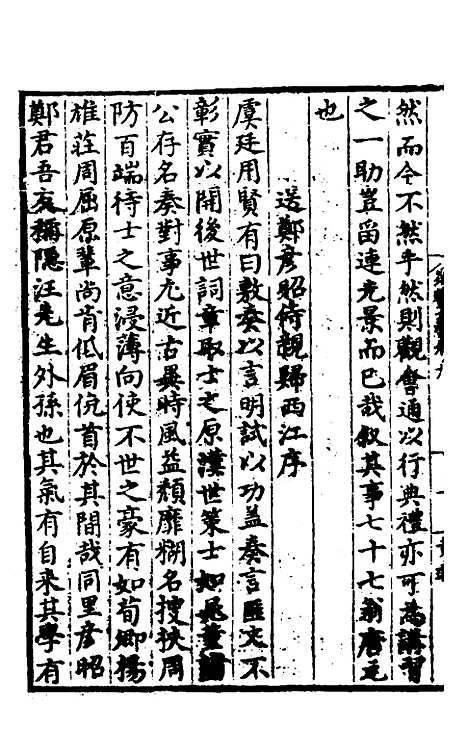 然而今不然乎然則觀會通以行典禮亦可為講習
之一助豈留連光景而已哉叙其事七十七翁唐元
也
送鄭彥昭侍親歸西江序
虞廷用賢有曰敷奏以言明試以功益奏言匪文不
彰實以開後世詞章取士之原漢世策士如晁董諸
公存名奏對事尤近古異時風益頹靡糊名搜挾周
防百端待士之意浸薄向使不世之豪有如荀卿揚
雄莊周屈原輩尚肯低眉俛首於其間哉同里彥昭
鄭君吾友稱隱汪先生外孫也其氣有自來其學有